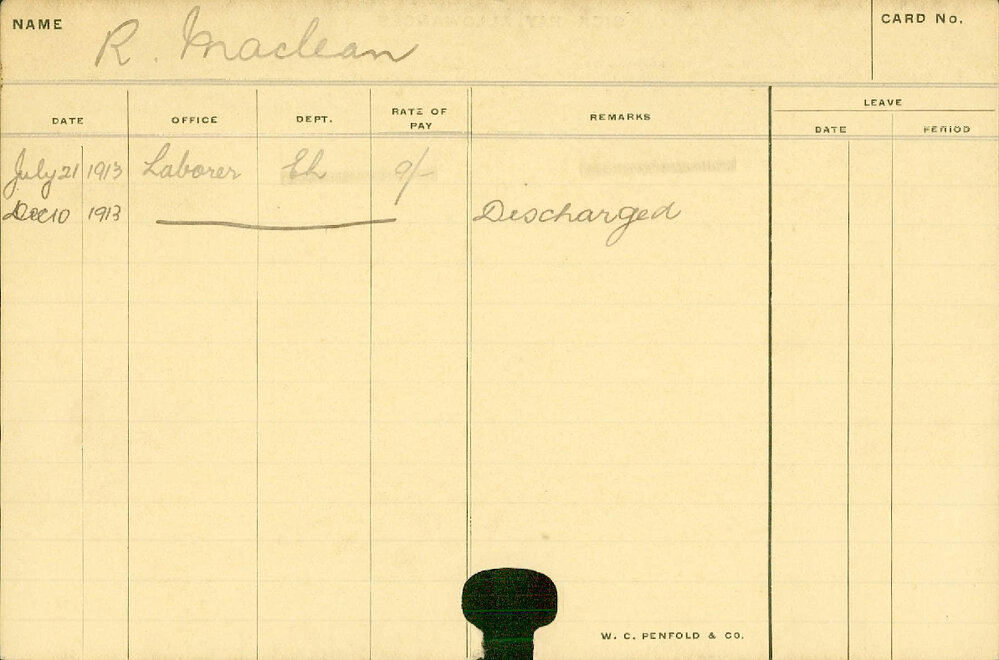 NAME R. Maclean CARD No.
DATE OFFICE DEPT. RATE OF PAY REMARKS LEAVE
DATE PERIOD
July 21 1913 Laborer Eh 9/-
Dec 10 1913 Discharged
W. C. PENFOLD & CO.